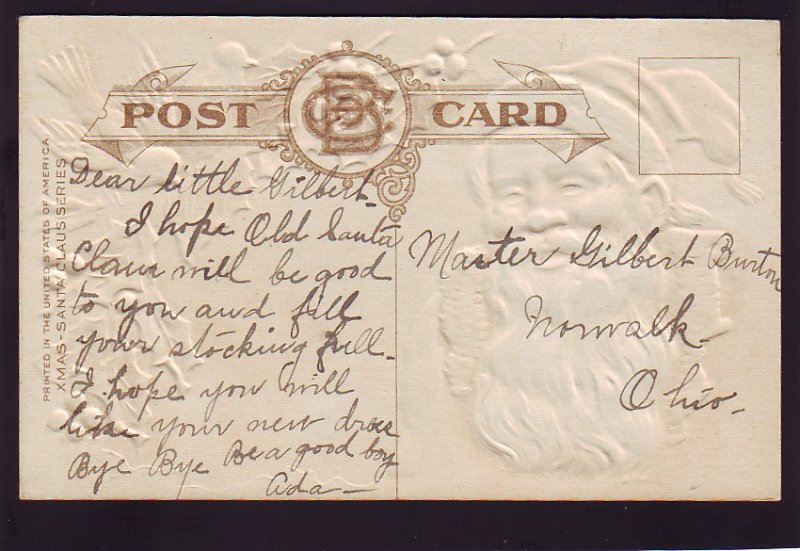 POST CARD
PRINTED IN THE UNITED STATES OF AMERICA
XMAS-SANTA CLAUS SERIES
Dear little Gilbert.
I hope Old Santa
Claus will be good
to you and fill
your stocking full.
I hope you will
like your new dress
Bye Bye Be a good boy
Ada
Master Gilbert Burton
Norwalk.
Ohio.